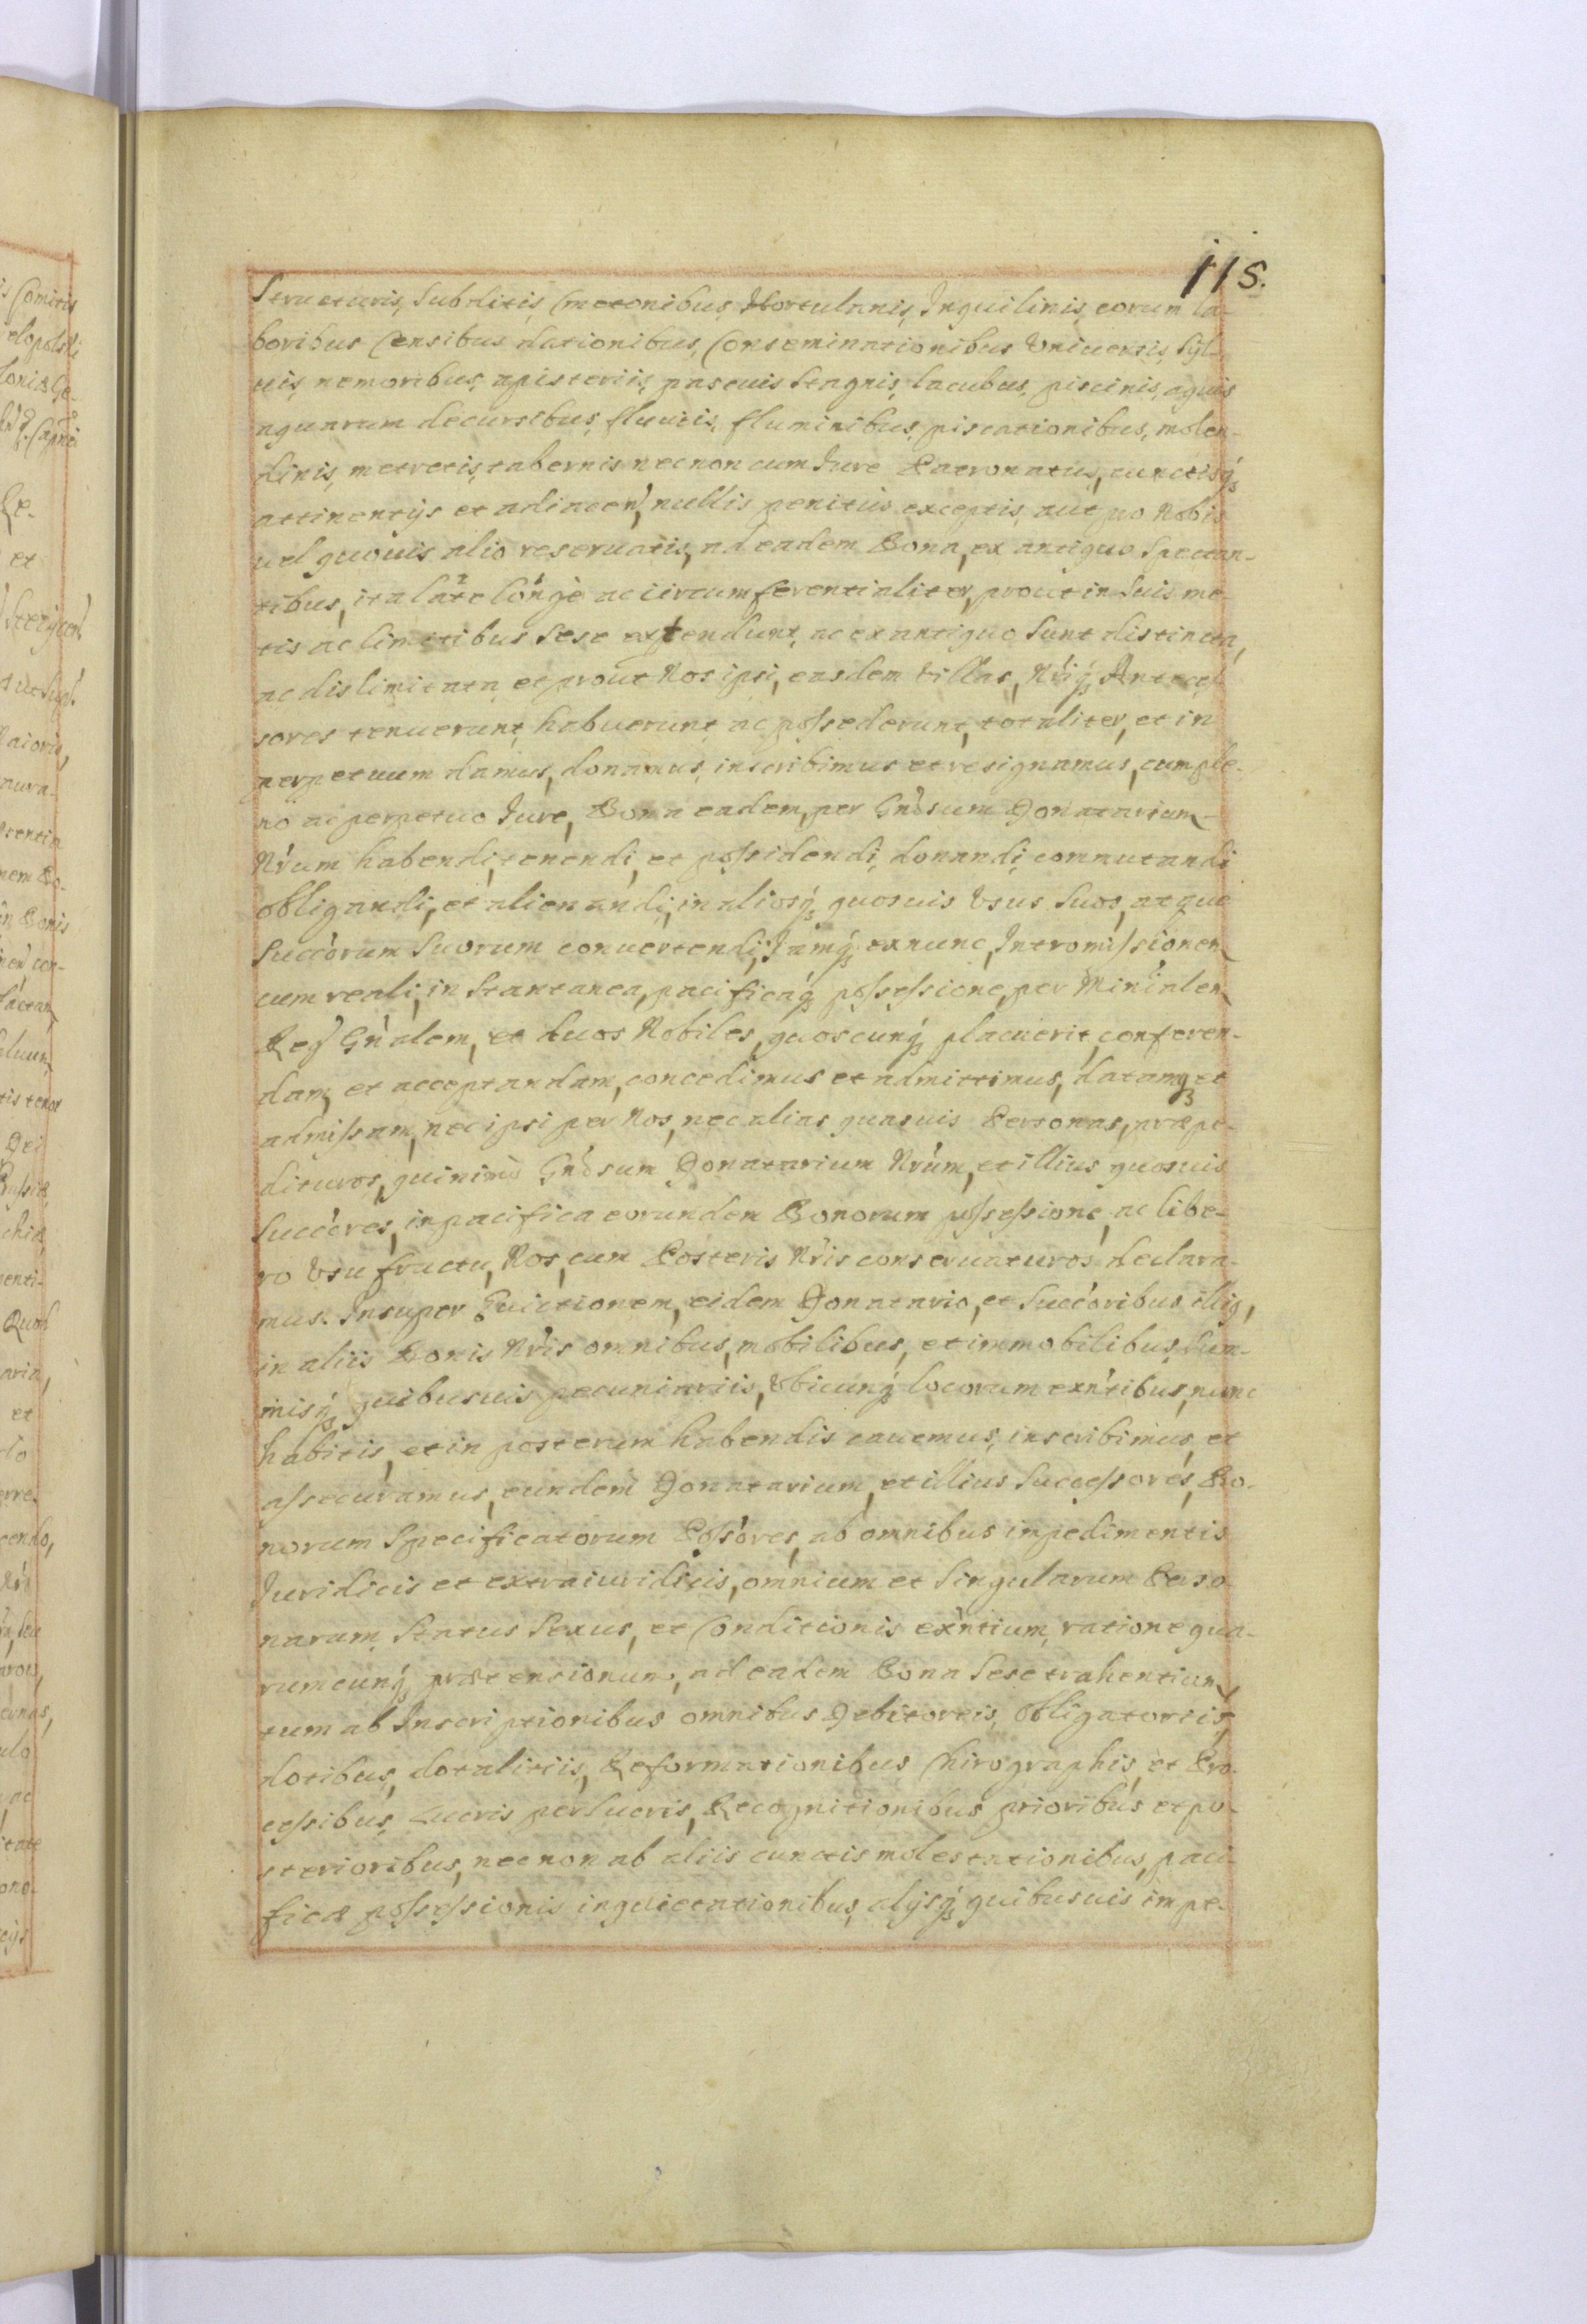 115.
Structuris, Subditis, Cmetonibus, Hortulanis, Inquilinis, eorum la-
boribus Censibus dationibus, Conseminationibus Vniuersis, Syl-
uis, nemoribus, apisteriis, pascuis Stagnis, lacubus, piscinis, aquis
aquarum decursibus, fluuiis, fluminibus, piscationibus, molen-
dinis, metretis, tabernis necnon cum Jure Patronatus, cunctisq3
attinentijs et adiacen, nullis penitus exceptis, aut pro Nobis
uel quouis alio reseruatis, ad eadem Bona, ex antiquo Spectan-
tibus, ita late longè ac circumferentialiter, prout in Suis me-
tis ac limitibus Sese extendunt, ac ex antiquo Sunt distincta,
ac dislimitata, et prout Nos ipsi, easdem Villas, Nriq3 Anteces-
sores tenuerunt, habuerunt, ac possederunt, totaliter, et in
perpetuum damus, donamus, inscribimus et resignamus, cum ple-
no ac perpetuo Jure, Bona eadem, per Gnosum Donatarium
Nrum habendi, tenendi, et possidendi, donandi, commutandi
obligandi, et alienandi, in aliosq3 quosuis Vsus Suos, atque
Succorum Suorum conuertendi, Jamq3 exnunc, Intromissionem
cum reali, instantanea, pacificaq3 possessione, per Minialem
Reg Gnalem, et duos Nobiles, quoscunq3 placuerit, conferen-
dam, et acceptandam, concedimus et admittimus, datamq3 et
admissam, nec ipsi per Nos, nec alias quasuis Personas, præpe-
dituros, quinimò Gnosum Donatarium Nrum, et illius quosuis
Succores, in pacifica eorundem Bonorum possessione, ac libe-
ro Vsu fructu, Nos, cum Posteris Nris conseruaturos declara-
mus. Insuper Euictionem, eidem Donatario, et Succoribus illiq,
in aliis Bonis Nris omnibus, mobilibus, et immobilibus, Sum-
misq3 quibusuis pecuniariis, Vbicunq3 locorum exntibus, nunc
habitis, et in posterum habendis cauemus, inscribimus, et
assecuramus, eundem Donatarium, et illius Successores, Bo-
norum Specificatorum Possores, ab omnibus impedimentis
Juridicis et extraiuridicis, omnium et Singularum Perso-
narum, Status Sexus, et Conditionis exntium, ratione qua-
rumcunq3 prætensionum, ad eadem Bona Sese trahentium
tum ab Inscriptionibus omnibus Debitoriis, obligatoriis,
dotibus, dotalitiis, Reformationibus Chirographis, et Pro-
cessibus, Lucris perlucris, Recognitionibus prioribus et po-
sterioribus, necnon ab aliis cunctis molestationibus, paci-
ficæ possessionis inquietationibus, alijsq3 quibusuis impe-